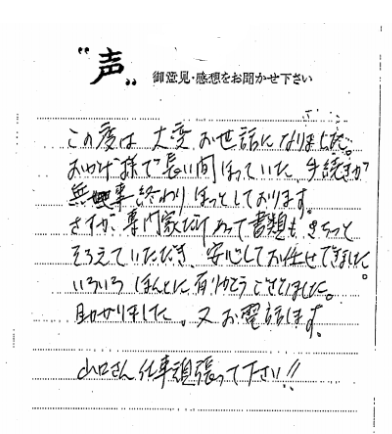 "声"
御意見・感想をお聞かせ下さい
この度は 大変 お世話になりました。
おかげ様で長い間ほっていた、手続きが
無事終わり ほっとしております。
さすが、専門家だけあって書類も きちっと
そろえていただき、安心してお任せできました。
いろいろ ほんとに有りがとうございました。
助かりました。又お電話します。
山口さん 仕事頑張って下さい!!